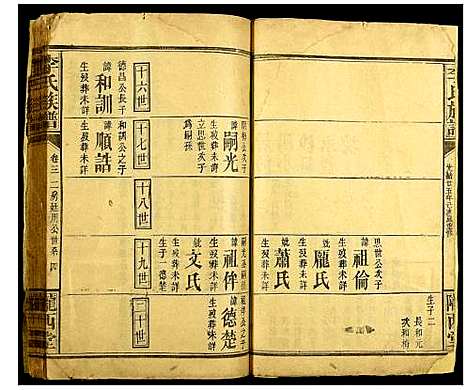 李氏族譜
光緒廿五年
隴西堂
思世公次子
諱祖倫
生歿葬未詳
妣龐氏
生歿葬未詳
妣蕭氏
生歿葬未詳
生子二
長和元
次和柏
李氏族譜
卷三
二房廷用公世系
四
隴西堂
十六世
德昌公長子
諱和訓
生歿葬未詳
十七世
和訓公之子
諱順誥
生歿葬未詳
公次子
諱嗣光
生歿葬未詳
立思世次子
為嗣孫
十八世
十九世
諱祖倅
生歿葬未詳
妣文氏
生歿葬未詳
生子一德楚
二十世
諱德楚
生歿葬未詳